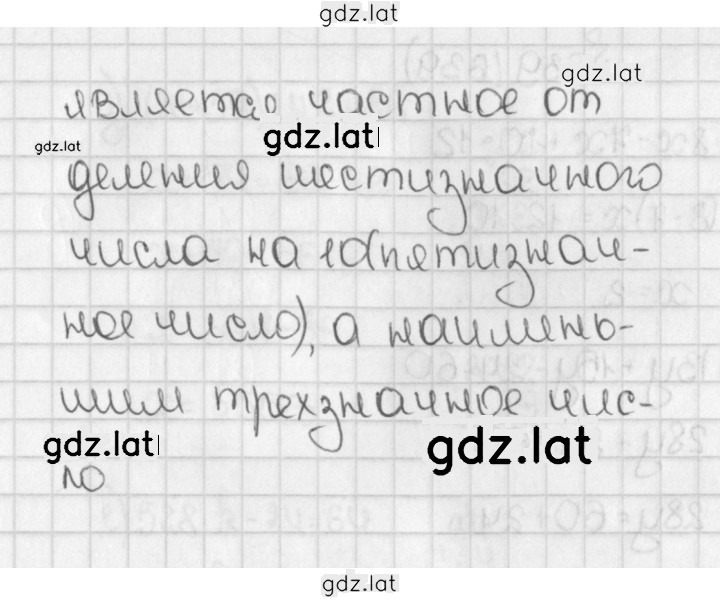 gdz.lat
gdz.lat
является частное от
gdz.lat
gdz.lat
деления шестизначного
числа на 10(пятизнач-
ное число), а наимень-
шим трехзначное чис-
gdz.lat
gdz.lat
ло
gdz.lat